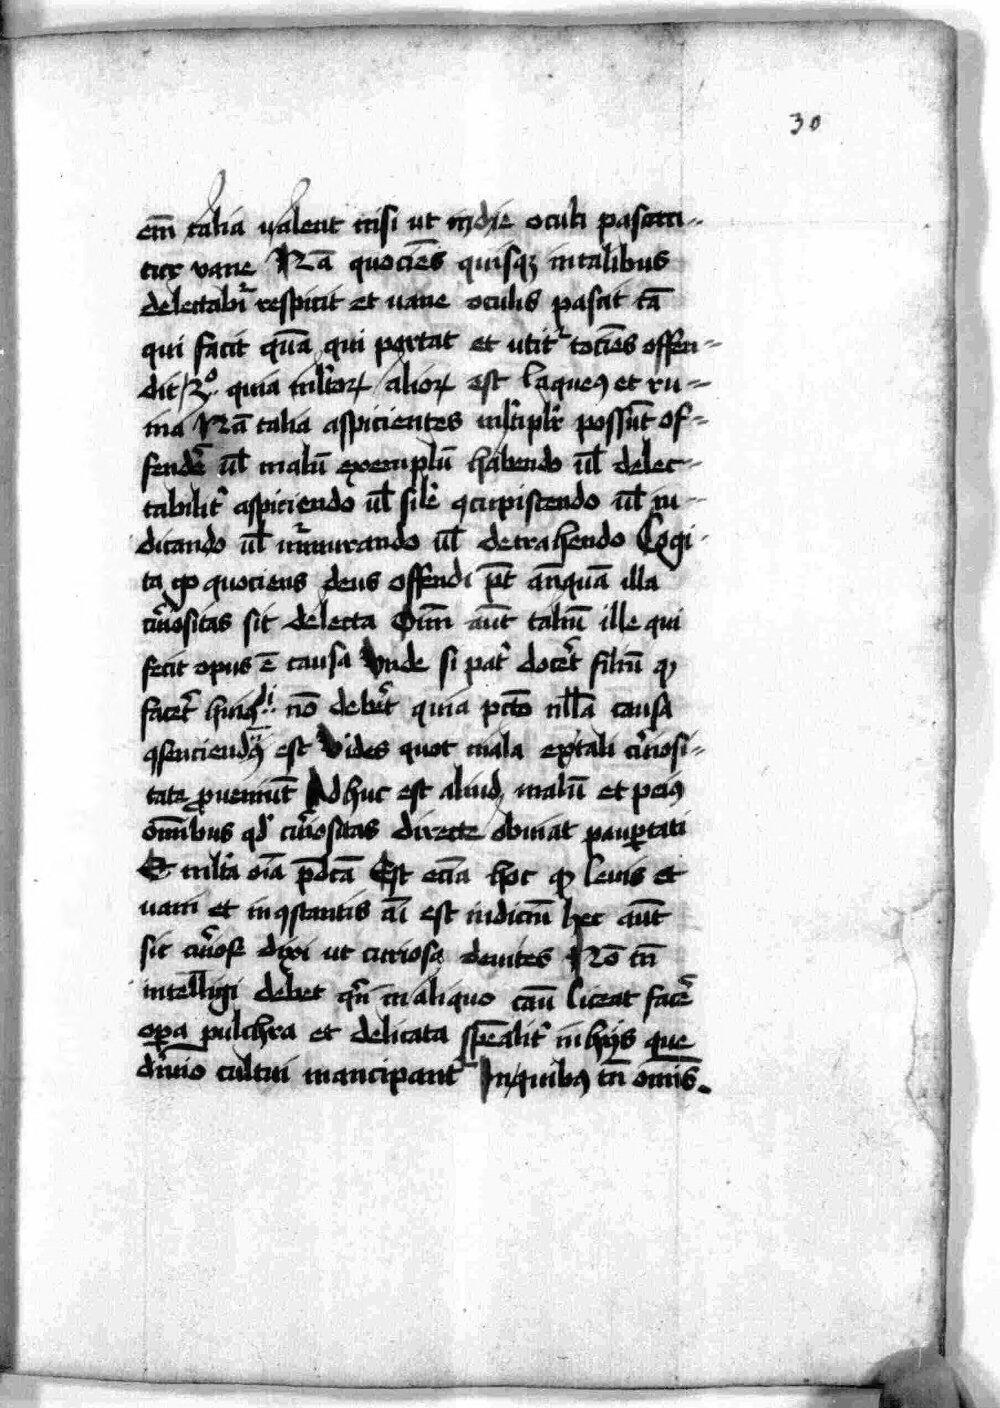 30
em̄ talia valent nisi ut indie oculi pascan-
tur vane Nā quociēs quisqȝ in talibus
delectabiľr respicit et vane oculis pascit tā
qui facit quā qui portat et utitr̉ tociēs offen-
dit quia mltoꝝ alioꝝ est laqueꝰ et ru-
ina Nā talia aspicientes mltiplr possūt of-
fendẽ ul̄ malū exemplū habendo ul̄ delec-
tabilit̉ aspiciendo ul̄ silr̉ ꝯcupiscendo ul̄ iu-
dicando ul̄ murmurando ul̄ detrahendo Cogi-
ta qͦ quociens deus offendi pt̄ anquā illa
cu̓iositas sit delecta Oīm aūt taliū ille qui
fecit opus ē causa Unde si pat̉ docet̉ filiū ꝙ
facet̉ huiꝰdi nō debet̉ quia pctō nlla causa
ꝯsenciendū est Vides quot mala ex tali cu̓iosi-
tate ꝓueniūt Adhuc est aliud malū et peiꝰ
om̄ibus qd̓ cu̓iositas directe obuiat paup̱tati
Et mlta oīa p̄dcā Est eciā hoc ꝙ leuis et
uani et inꝯstantis aī est indiciū hec aūt
sit cu̓ios dixi ut curiosa deuites Nō tn̄
intelligi debet qn̄ in aliquo cāu liceat facẽ
op̱a pulchra et delicata sp̄ealit̉ in hijs que
diuīo cultui mancipant̉ In quibꝰ tn̄ omīs